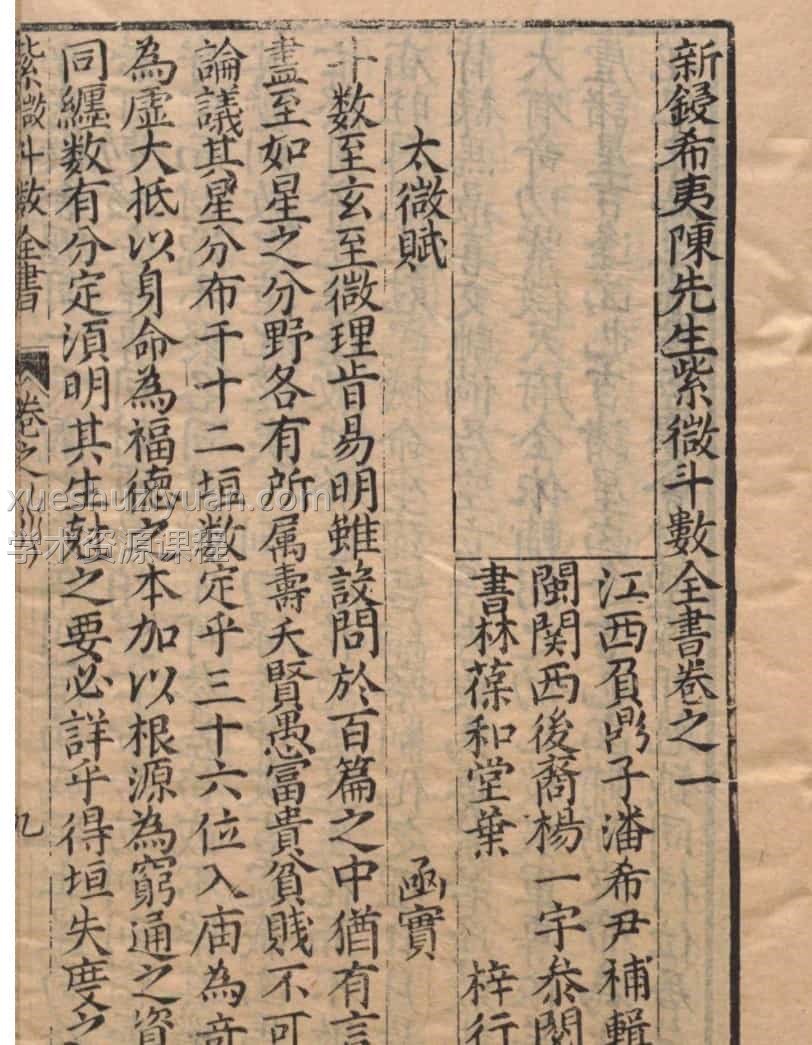 新鋟希夷陳先生紫微斗數全書卷之一
江西負鼎子潘希尹補輯
閩関西後裔楊一宇叅閱
書林葆和堂葉 梓行
太微賦 函實
斗数至玄至微理肯易明雖設問於百篇之中猶有言
盡至如星之分野各有所属壽夭賢愚富貴貧賤不可
論議其星分布于十二垣数定乎三十六位入庙為竒
為虚大抵以身命為福德之本加以根源為窮通之資
同纏数有分定湏明其生尅之要必詳乎得垣失度之
紫微斗數全書 卷之 九
xueshuziyuan.com
学术资源课程